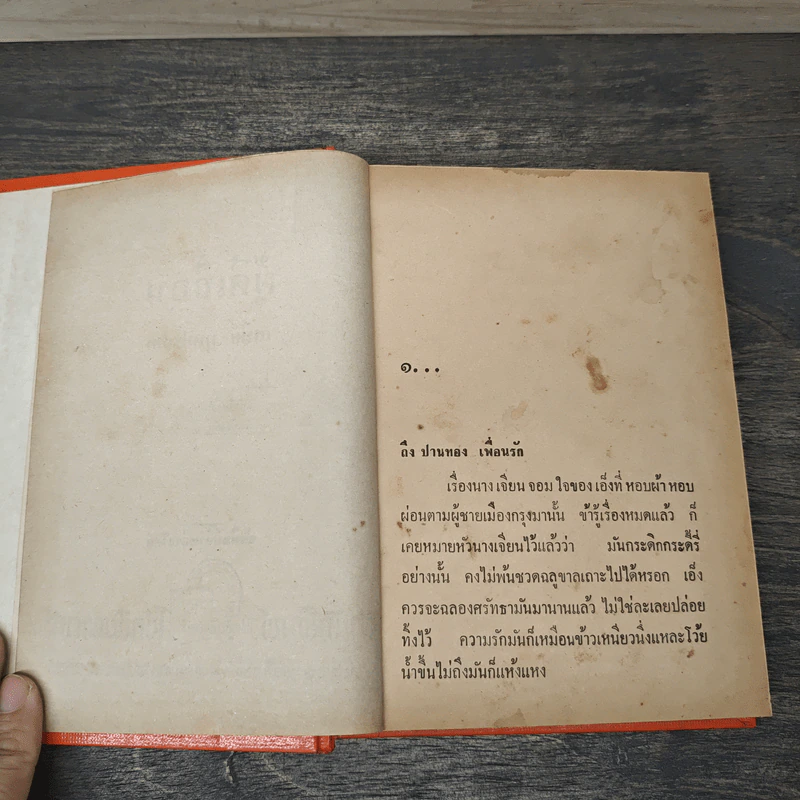 ๑...
ถึง ปานทอง เพื่อนรัก
เรื่องนาง เจียน จอม ใจของ เอ็งที่ หอบผ้า หอบ
ผ่อนตามผู้ชายเมืองกรุงมานั้น ข้ารู้เรื่องหมดแล้ว ก็
เคยหมายหัวนางเจียนไว้แล้วว่า มันกระดิกกระดี้รี่
อย่างนั้น คงไม่พ้นชวดฉลูขาลเถาะไปได้หรอก เอ็ง
ควรจะฉลองศรัทธามันมานานแล้ว ไม่ใช่ละเลยปล่อย
ทิ้งไว้ ความรักมันก็เหมือนข้าวเหนียวนึ่งแหละโว้ย
น้ำขึ้นไม่ถึงมันก็แห้งแหง